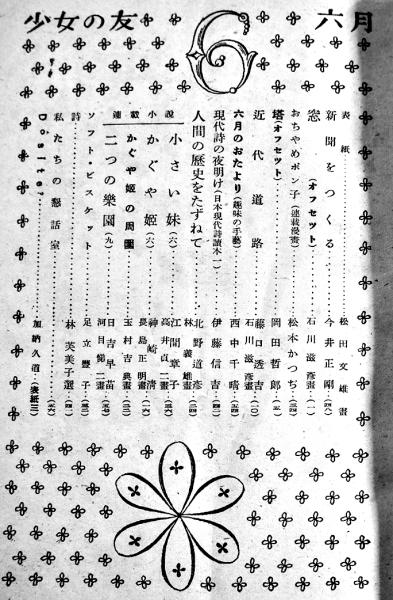 少女の友
6
六月
表紙……松田文雄畫
新聞をつくる……今井正剛
窓（オフセット）……石川滋彦畫（一）
おちやめポン子（連載漫畫）……松本かつぢ
塔（オフセット）……岡田哲郎
近代道路……藤口透吉
石川滋彦畫（一〇）
六月のおたより（趣味の手藝）……西中千晴
現代詩の夜明け（日本現代詩讀本一）……伊藤信吉
人間の歷史をたずねて……北野道彦
林義雄畫
連載小說
小さい妹（六）……江間章子
高井貞二畫
かぐや姬（六）……神崎清
長島正明畫
かぐや姬の周圍……玉村吉典畫
二つの樂園（九）……日吉早苗
河目悌二畫
ソフト・ビスケット……足立豐子
詩……林芙美子選
私たちの懇話室
Dositte?……加納久道（表紙三）